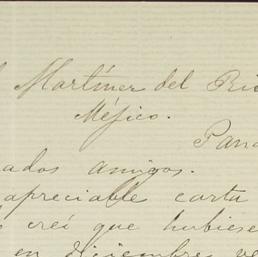 Martínez del Río
Méjico.
Pana
ados amigos.
apreciable carta
creí que hubiese
en diciembre ve